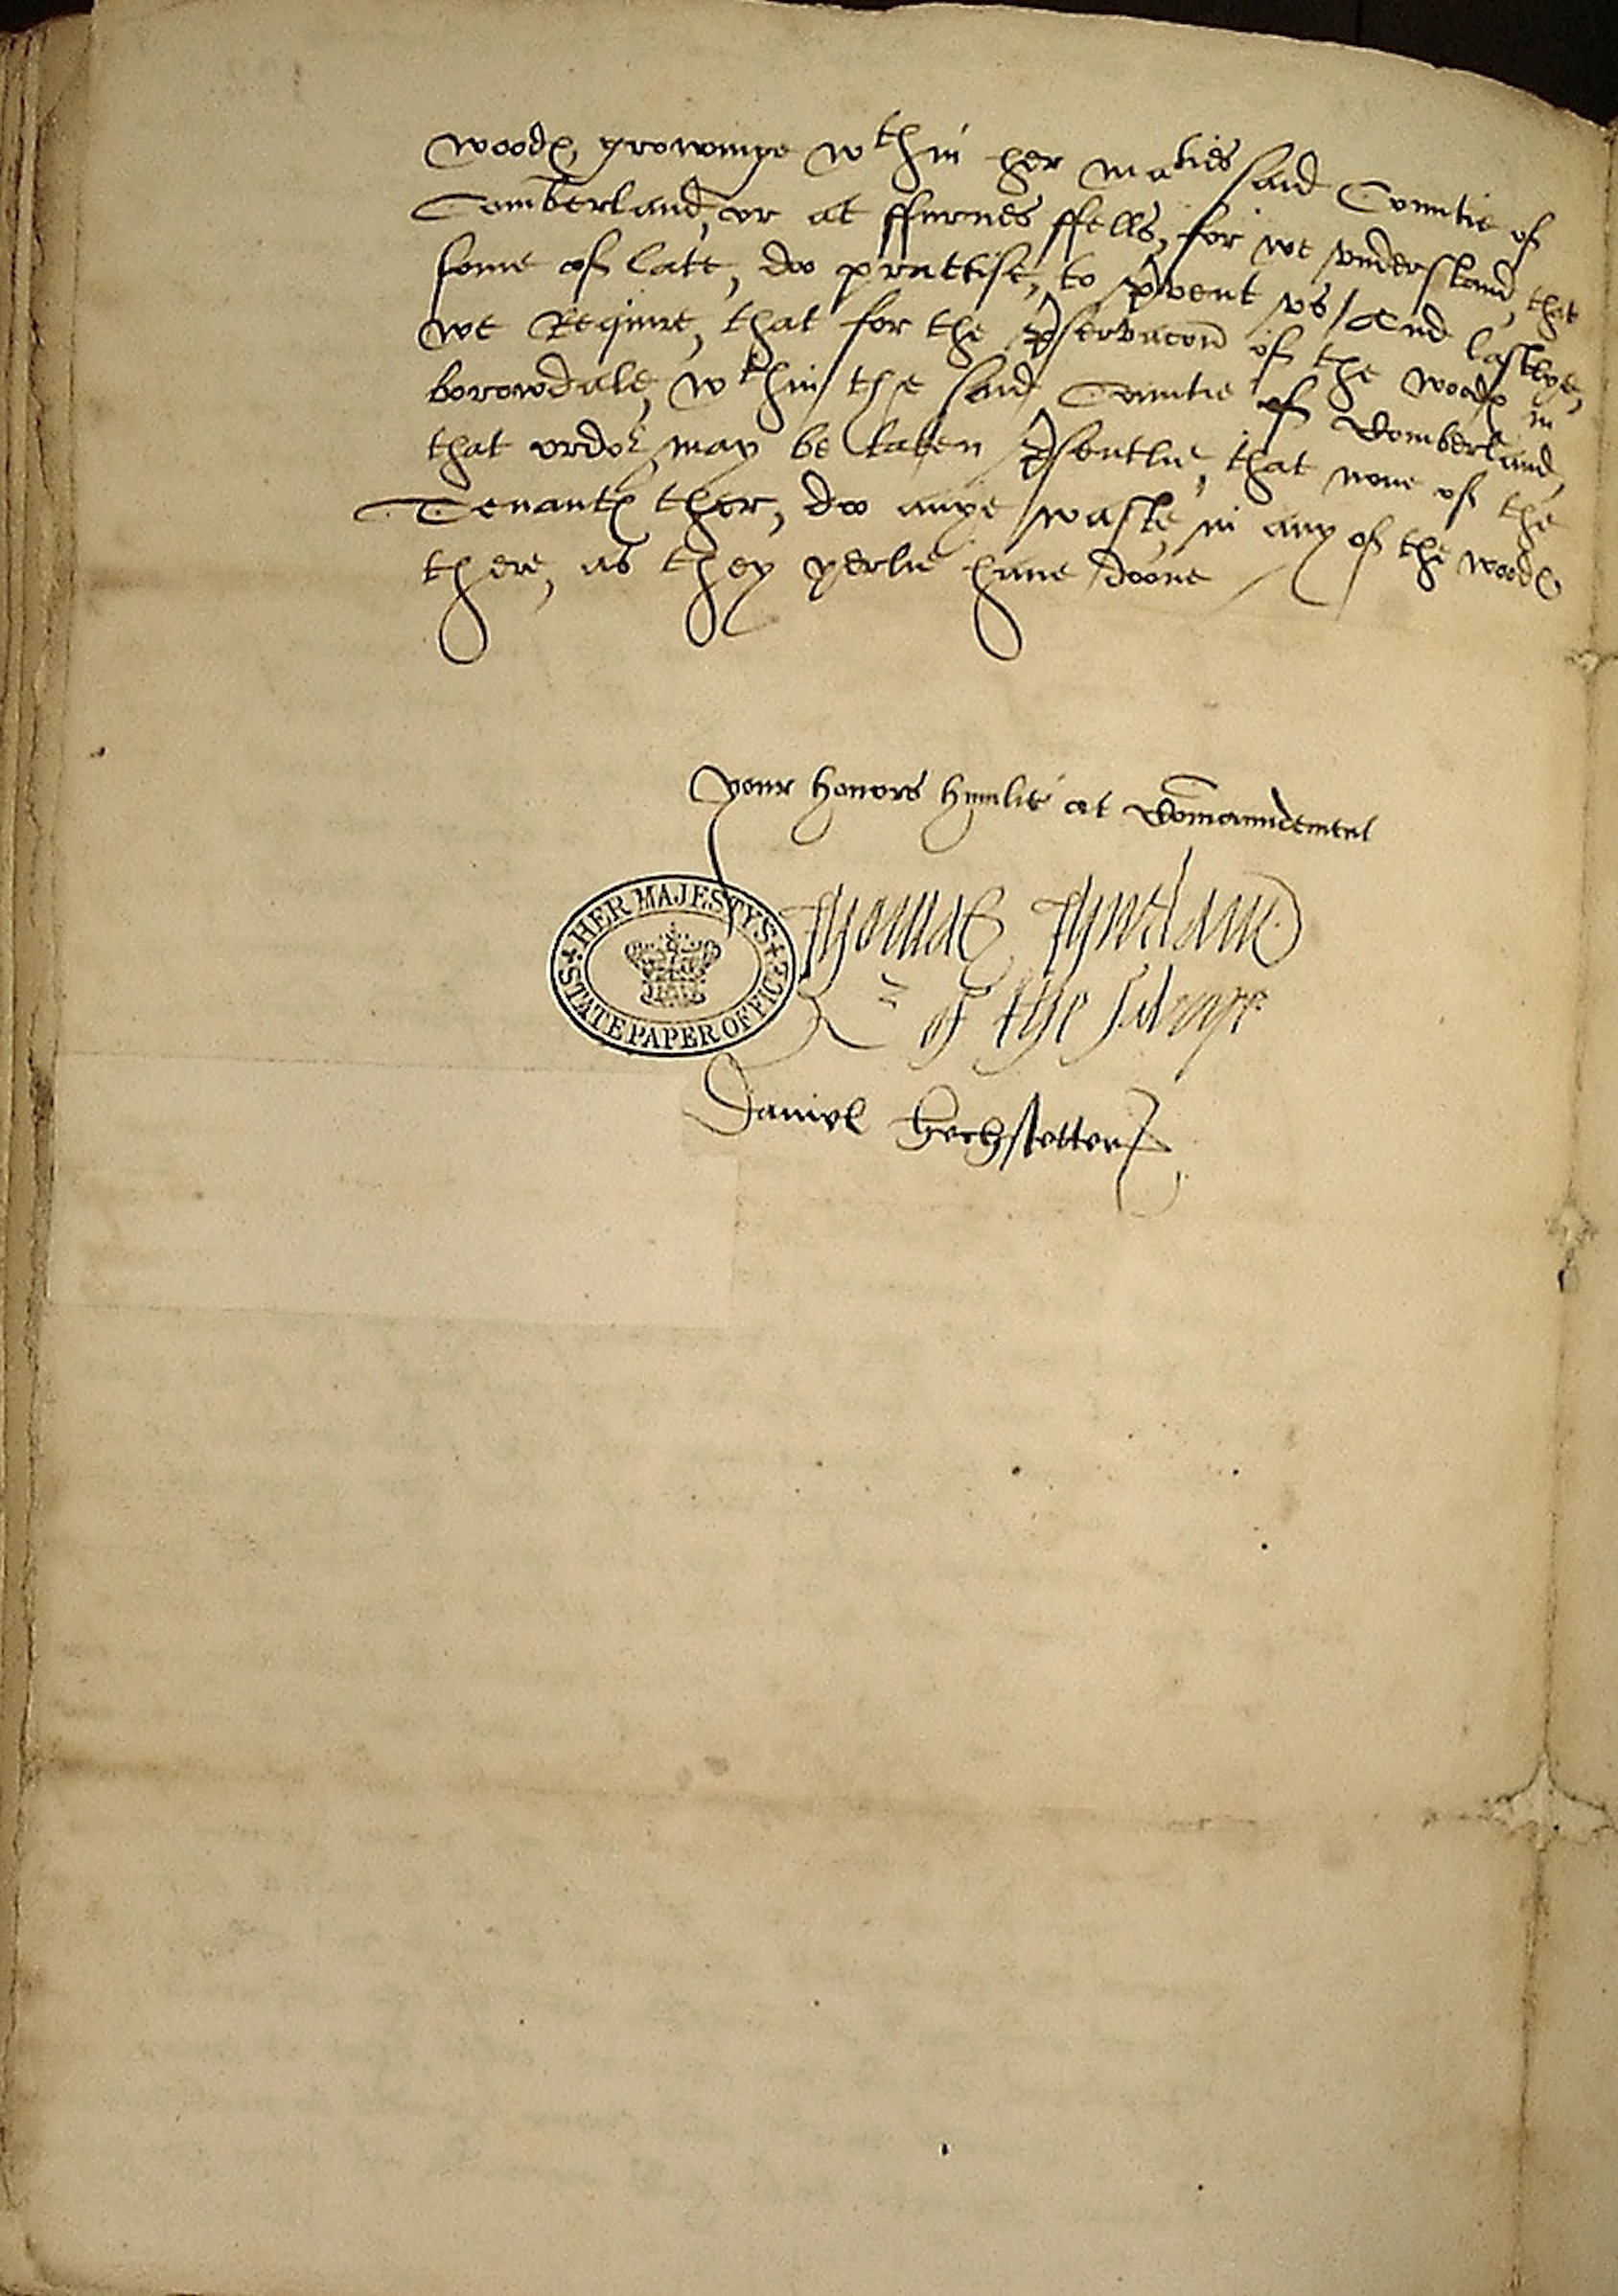 woodℓ growinge wthin her maties said Countie of
Comberland, or at ffurnes ffells, for we vnderstand, that
some of late, doo practise, to pvent vs / And lastlye,
we Require, that for the pservacon of the woodℓ in
borowdale, wthin the said Countie of Comberland,
that ordor, may be taken psentlie, that none of the
Tenantℓ ther, doo anye waste, in any of the woodℓ
there, as they yerlie haue doone
your honors humlie at Comaundement
HER MAJESTY'S
STATE PAPER OFFICE
Thomas Thurland
of the Savoye
Daniel Hechstetter